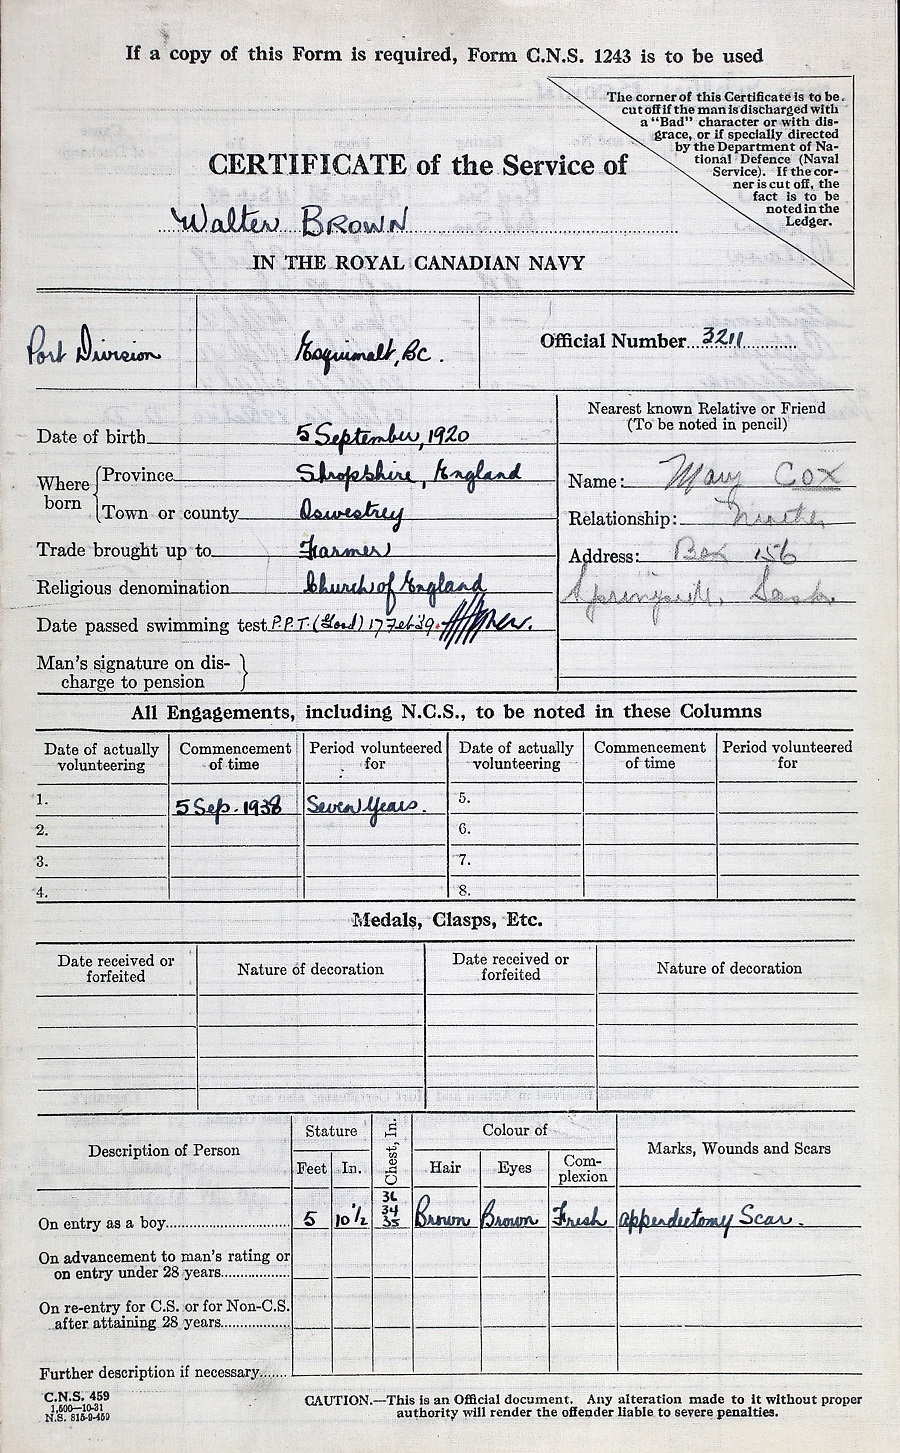 If a copy of this Form is required, Form C.N.S. 1243 is to be used
The corner of this Certificate is to be
cut off if the man is discharged with
a "Bad" character or with dis-
grace, or if specially directed
by the Department of Na-
tional Defence (Naval
Service). If the cor-
ner is cut off, the
fact is to be
noted in the
Ledger.
CERTIFICATE of the Service of
Walter BROWN
IN THE ROYAL CANADIAN NAVY
Port Division
Esquimalt, BC.
Official Number 3211
Nearest known Relative or Friend
(To be noted in pencil)
Date of birth 5 September, 1920
Where born { Province Shropshire, England
Town or county Oswestrey
Trade brought up to Farmer
Religious denomination Church of England
Date passed swimming test P.P.T. (Good) 17 Feb 39.
Man's signature on dis-
charge to pension }
Name: Mary Cox
Relationship: Mother
Address: Box 156
Springside, Sask.
All Engagements, including N.C.S., to be noted in these Columns
Date of actually volunteering Commencement of time Period volunteered for Date of actually volunteering Commencement of time Period volunteered for
1. 5 Sep. 1938 Seven Years. 5.
2. 6.
3. 7.
4. 8.
Medals, Clasps, Etc.
Date received or forfeited Nature of decoration Date received or forfeited Nature of decoration
Description of Person Stature Chest, In. Colour of Marks, Wounds and Scars
Feet In. Hair Eyes Com-plexion
On entry as a boy 5 10 1/2 36 34 35 Brown Brown Fresh appendectomy Scar.
On advancement to man's rating or
on entry under 28 years
On re-entry for C.S. or for Non-C.S.
after attaining 28 years
Further description if necessary
C.N.S. 459
1,500—10-31
N.S. 815-9-459
CAUTION.—This is an Official document. Any alteration made to it without proper
authority will render the offender liable to severe penalties.